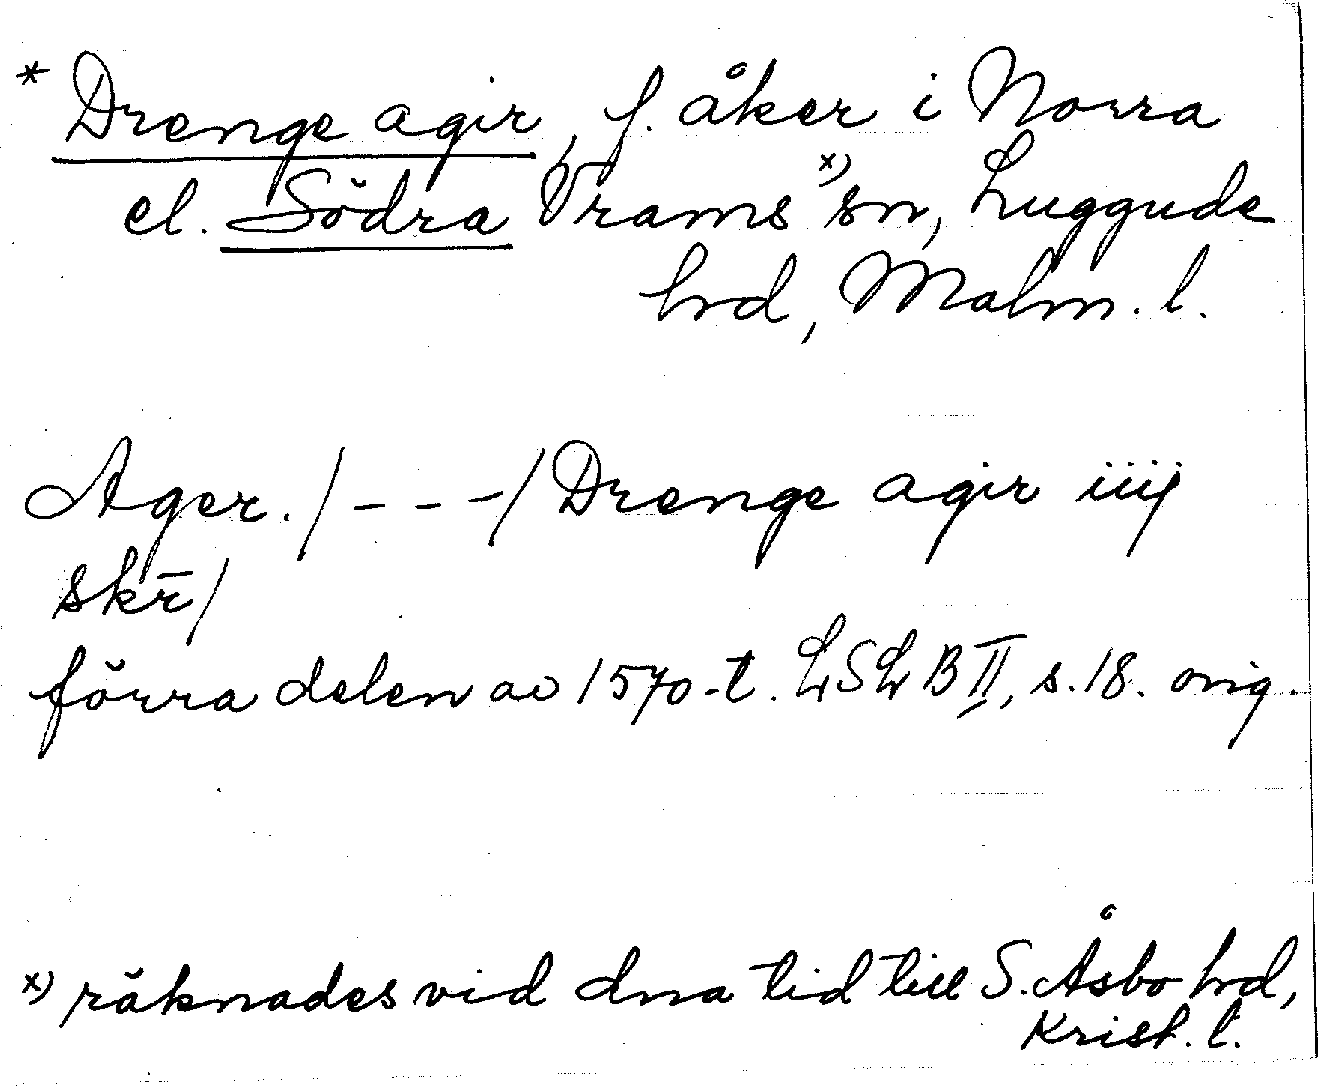 * Drenge agir, f. åker i Norra
el. Södra Vrams x) sn, Luggude
hrd, Malm. l.
Ager. /---/ Drenge agir iiij
skr̄/
förra delen av 1570-t. LSLB II, s. 18. orig.
x) räknades vid dna tid till S. Åsbo hrd,
Krist. l.